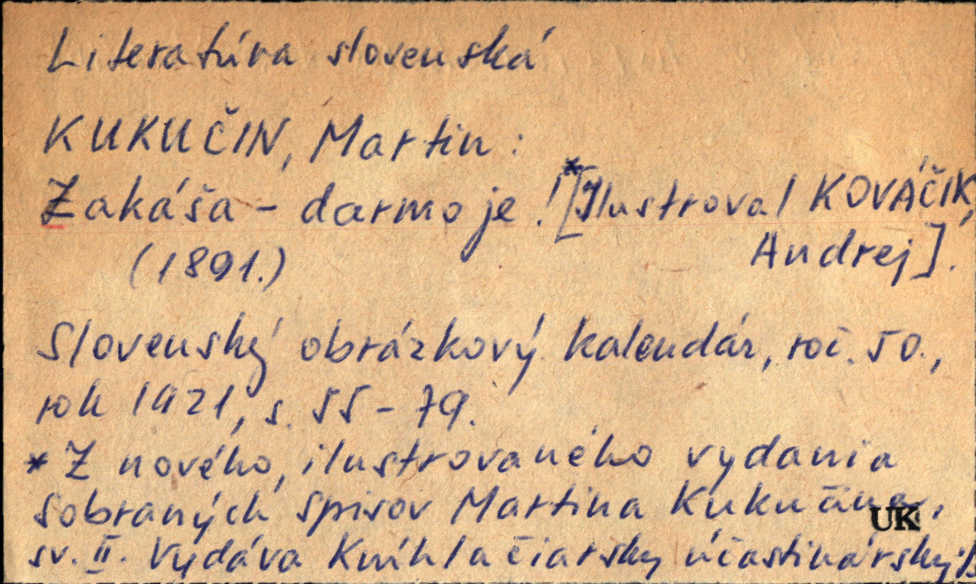 Literatúra slovenská
KUKUČIN, Martin:
Zakáša - darmo je! *[Ilustroval KOVÁČIK,
(1891.) Andrej].
Slovenský obrázkový kalendár, roč. 50.,
rok 1921, s. 55-79.
* Z nového, ilustrovaného vydania
sobraných spisov Martina Kukučina,
sv. II. Vydáva Kníhtlačiarsky účastinársky
UK